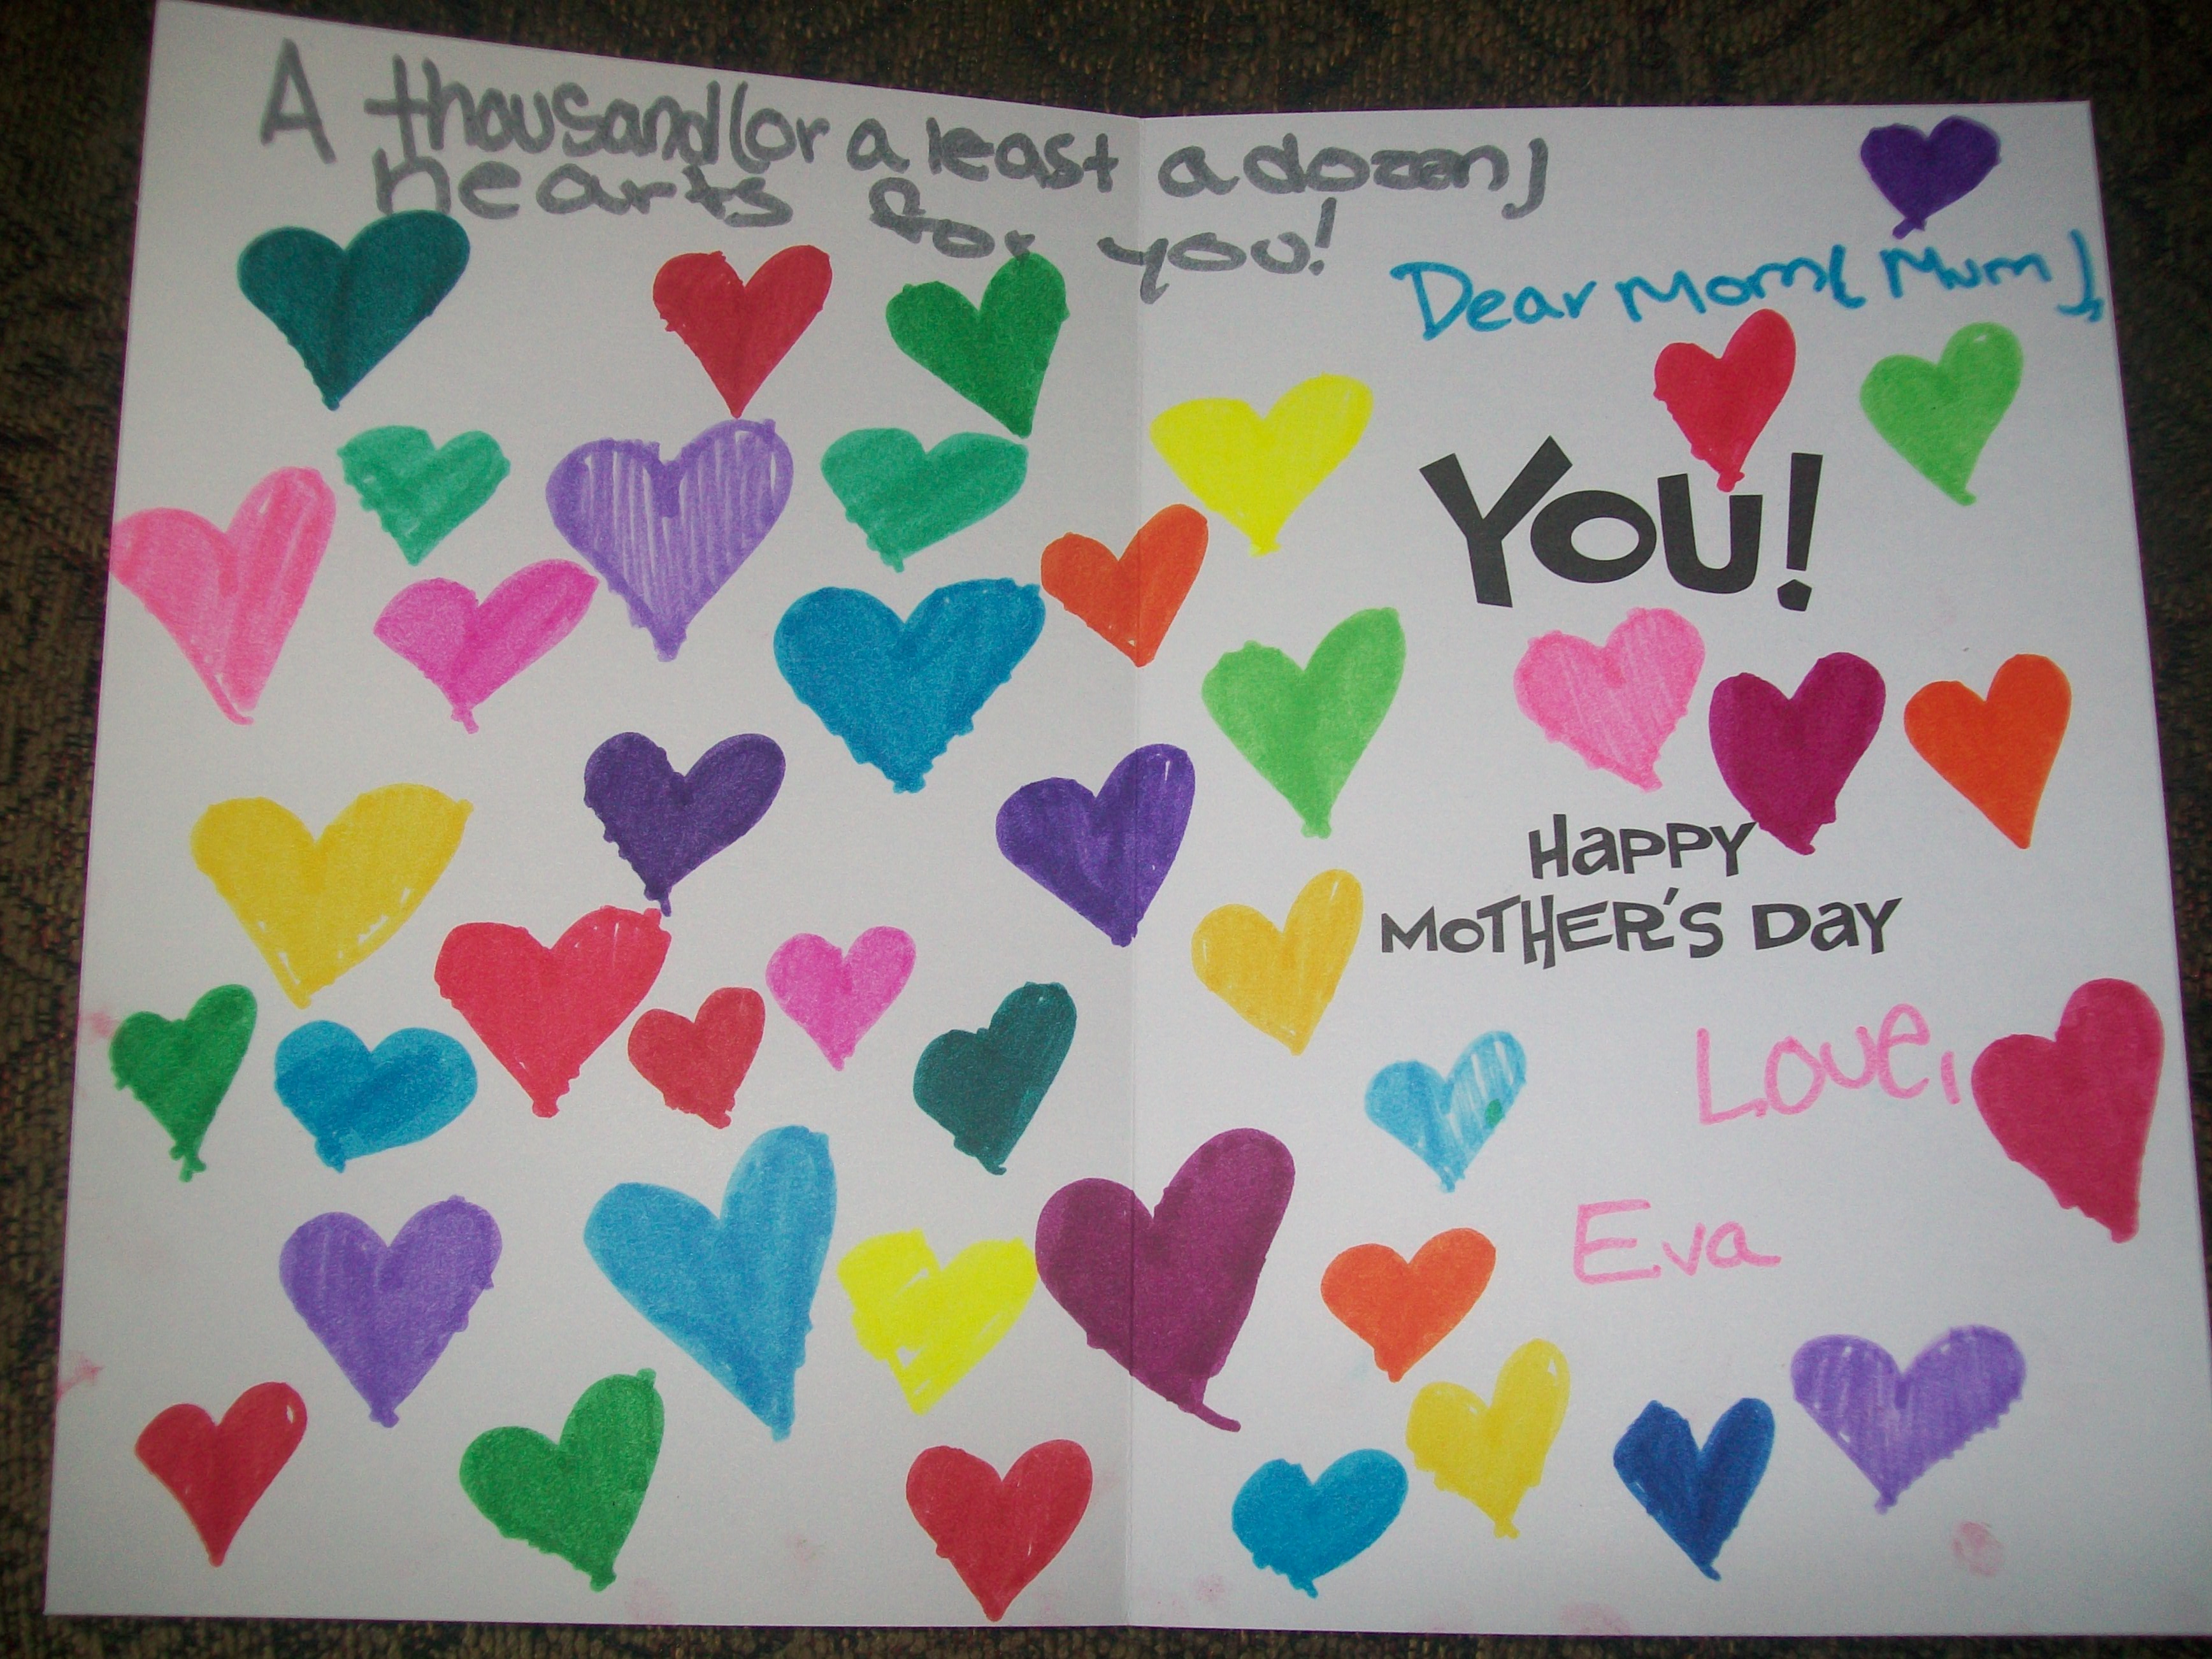 A thousand (or a least a dozen)
hearts for you!
Dear Mom (Mum),
YOU!
HAPPY
MOTHER'S DAY
Love,
Eva